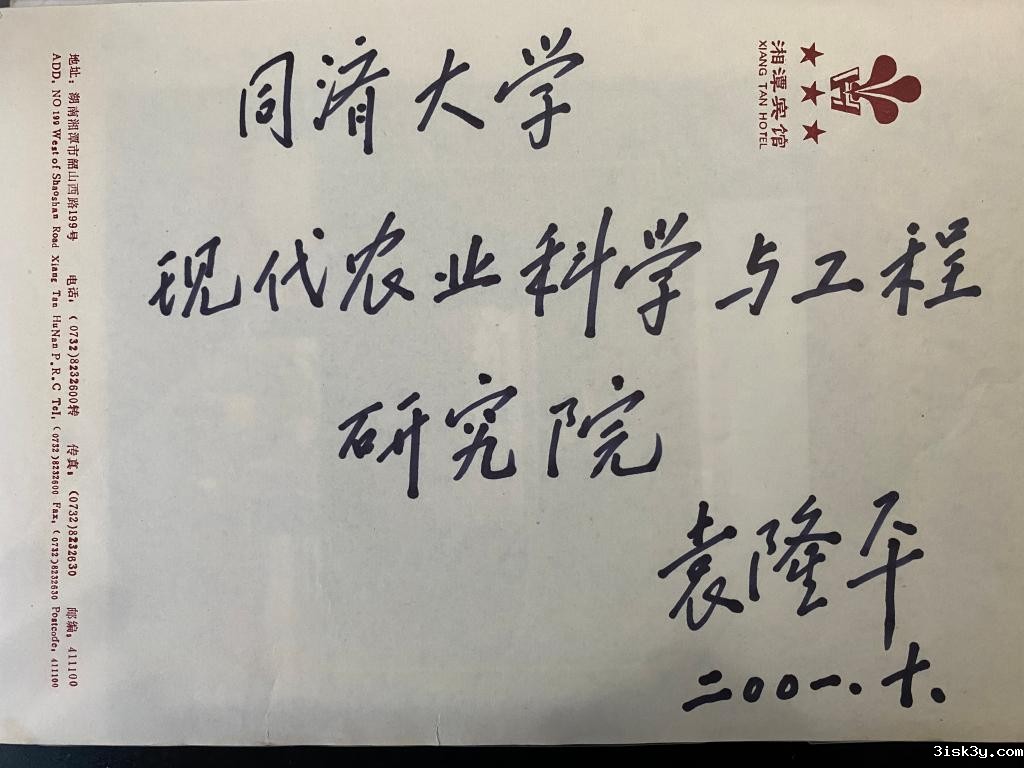 同济大学
现代农业科学与工程
研究院
袁隆平
二00一.十.
湘潭宾馆
XIANG TAN HOTEL
地址：湖南湘潭市韶山西路199号 电话：(0732)8232600转 传真：(0732)8232630 邮编：411100
ADD. NO 199 West of Shaoshan Road Xiang Tan HuNan P.R.C Tel.(0732)8232600 Fax.(0732)8232630 Postcode: 411100
3isk3y.com